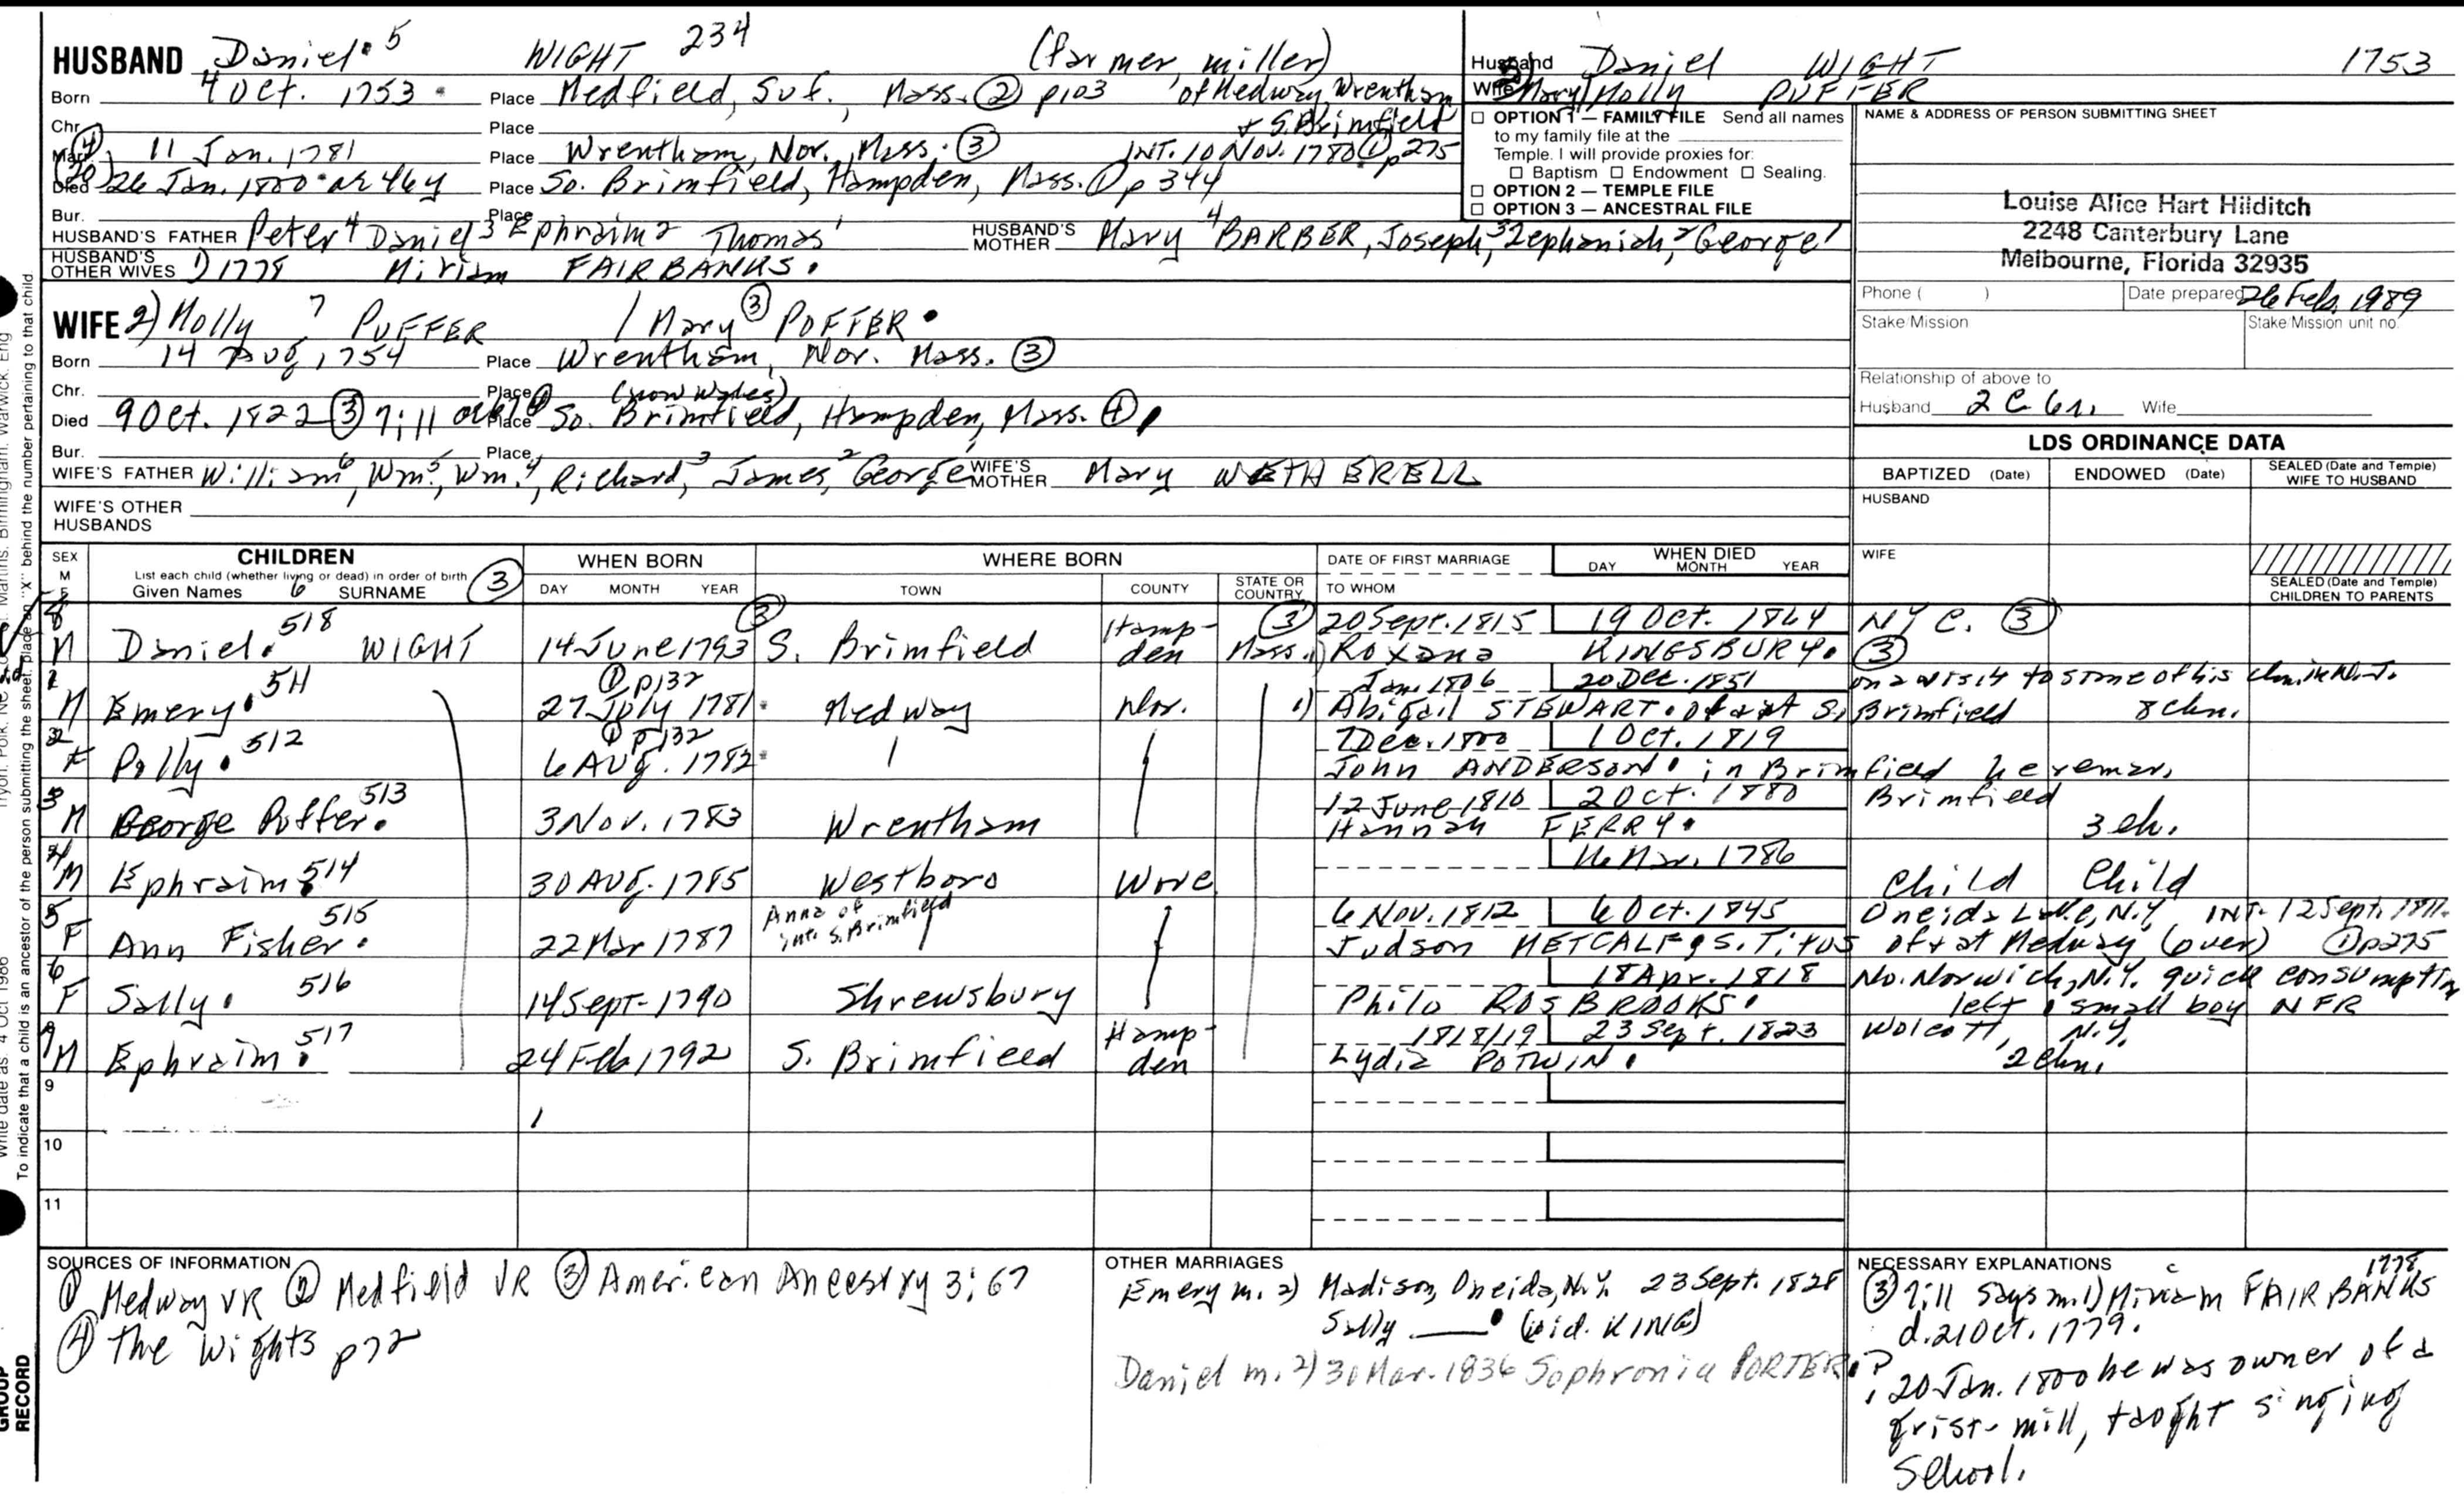 HUSBAND Daniel 5 WIGHT 234 (farmer, miller)
Born 4 Oct. 1753 Place Medfield, Suf., Mass. ② p103 of Medway, Wrentham
Chr. Place & S. Brimfield
④ Marr. 11 Jan. 1781 Place Wrentham, Nor., Mass. ③ INT. 10 Nov. 1780 ① p275
Died 26 Jan. 1800 ae 46y Place So. Brimfield, Hampden, Mass. ① p 344
Bur. Place
HUSBAND'S FATHER Peter 4 Daniel 3 Ephraim 2 Thomas 1 HUSBAND'S MOTHER Mary 4 BARBER, Joseph, 3 Zephaniah, 2 George 1
HUSBAND'S OTHER WIVES 1) 1778 Miriam FAIRBANKS.
WIFE 2) Molly 7 PUFFER / Mary ③ POFFER
Born 14 Aug 1754 Place Wrentham, Nor. Mass. ③
Chr. Place (now Wales)
Died 9 Oct. 1822 ③ Place So. Brimfield, Hampden, Mass. ④
Bur. Place
WIFE'S FATHER William 6, Wm. 5, Wm. 4, Richard, 3 James, 2 George 1 WIFE'S MOTHER Mary WETHERELL
WIFE'S OTHER HUSBANDS
Husband Daniel WIGHT 1753
Wife 2) Mary/Molly PUFFER
☐ OPTION 1 — FAMILY FILE Send all names
to my family file at the
Temple. I will provide proxies for:
☐ Baptism ☐ Endowment ☐ Sealing.
☐ OPTION 2 — TEMPLE FILE
☐ OPTION 3 — ANCESTRAL FILE
NAME & ADDRESS OF PERSON SUBMITTING SHEET
Louise Alice Hart Hilditch
2248 Canterbury Lane
Melbourne, Florida 32935
Phone ( ) Date prepared 26 Feb. 1989
Stake/Mission Stake/Mission unit no.
Relationship of above to
Husband 2 C 6r. Wife
LDS ORDINANCE DATA
BAPTIZED (Date) ENDOWED (Date) SEALED (Date and Temple) WIFE TO HUSBAND
HUSBAND
WIFE
SEALED (Date and Temple) CHILDREN TO PARENTS
SEX M F CHILDREN WHEN BORN WHERE BORN DATE OF FIRST MARRIAGE WHEN DIED
List each child (whether living or dead) in order of birth
Given Names 6 SURNAME ③ DAY MONTH YEAR TOWN COUNTY STATE OR COUNTRY TO WHOM DAY MONTH YEAR
8 518 ③ Hamp- ③ 20 Sept. 1815 19 Oct. 1864 NYC. ③
M Daniel. WIGHT 14 June 1793 S. Brimfield den Mass. 1) Roxana KINGSBURY. ③
1 511 ① p132 Jan. 1806 20 Dec. 1851 on a visit to some of his
M Emery. 27 July 1781 Medway Nor. 1) Abigail STEWART. of & at S. Brimfield 8 chn.
2 512 ① p132 7 Dec. 1800 1 Oct. 1819
F Polly. 6 Aug. 1782 John ANDERSON. in Brimfield he remar.
3 513 12 June 1816 2 Oct. 1880 Brimfield
M George Puffer. 3 Nov. 1783 Wrentham Hannah FERRY. 3 ch.
4 514 1786
M Ephraim 30 Aug. 1785 Westboro Worc. Child Child
5 515 Anna of int. S. Brimfield 6 Nov. 1812 6 Oct. 1845 Oneida N.Y. INT. 12 Sept. 1811
F Ann Fisher. 22 Mar 1787 Judson METCALF, s. Titus of & at Medway (over) ① p275
6 516 18 Apr. 1818 No. Norwich, N.Y. quick consumption
F Sally. 14 Sept. 1790 Shrewsbury Philo ROSBROOKS. left small boy NFR
7 517 Hamp- 1818/19 23 Sept. 1823 Wolcott, N.Y.
M Ephraim. 24 Feb 1792 S. Brimfield den Lydia POTWIN. 2 chn.
9
10
11
SOURCES OF INFORMATION
① Medway VR ② Medfield VR ③ American Ancestry 3:67
④ The Wights p72
OTHER MARRIAGES
Emery m. 2) Madison, Oneida, N.Y. 23 Sept. 1828
Sally ___ (wid. KING)
Daniel m. 2) 30 Mar. 1836 Sophronia PORTER
NECESSARY EXPLANATIONS 1778
③ says m. 1) Miriam FAIRBANKS
d. 21 Oct. 1779.
20 Jan. 1800 he was owner of a
grist-mill, taught singing
School.
To indicate that a child is an ancestor of the person submitting the sheet, place an "X" behind the number pertaining to that child
GROUP RECORD